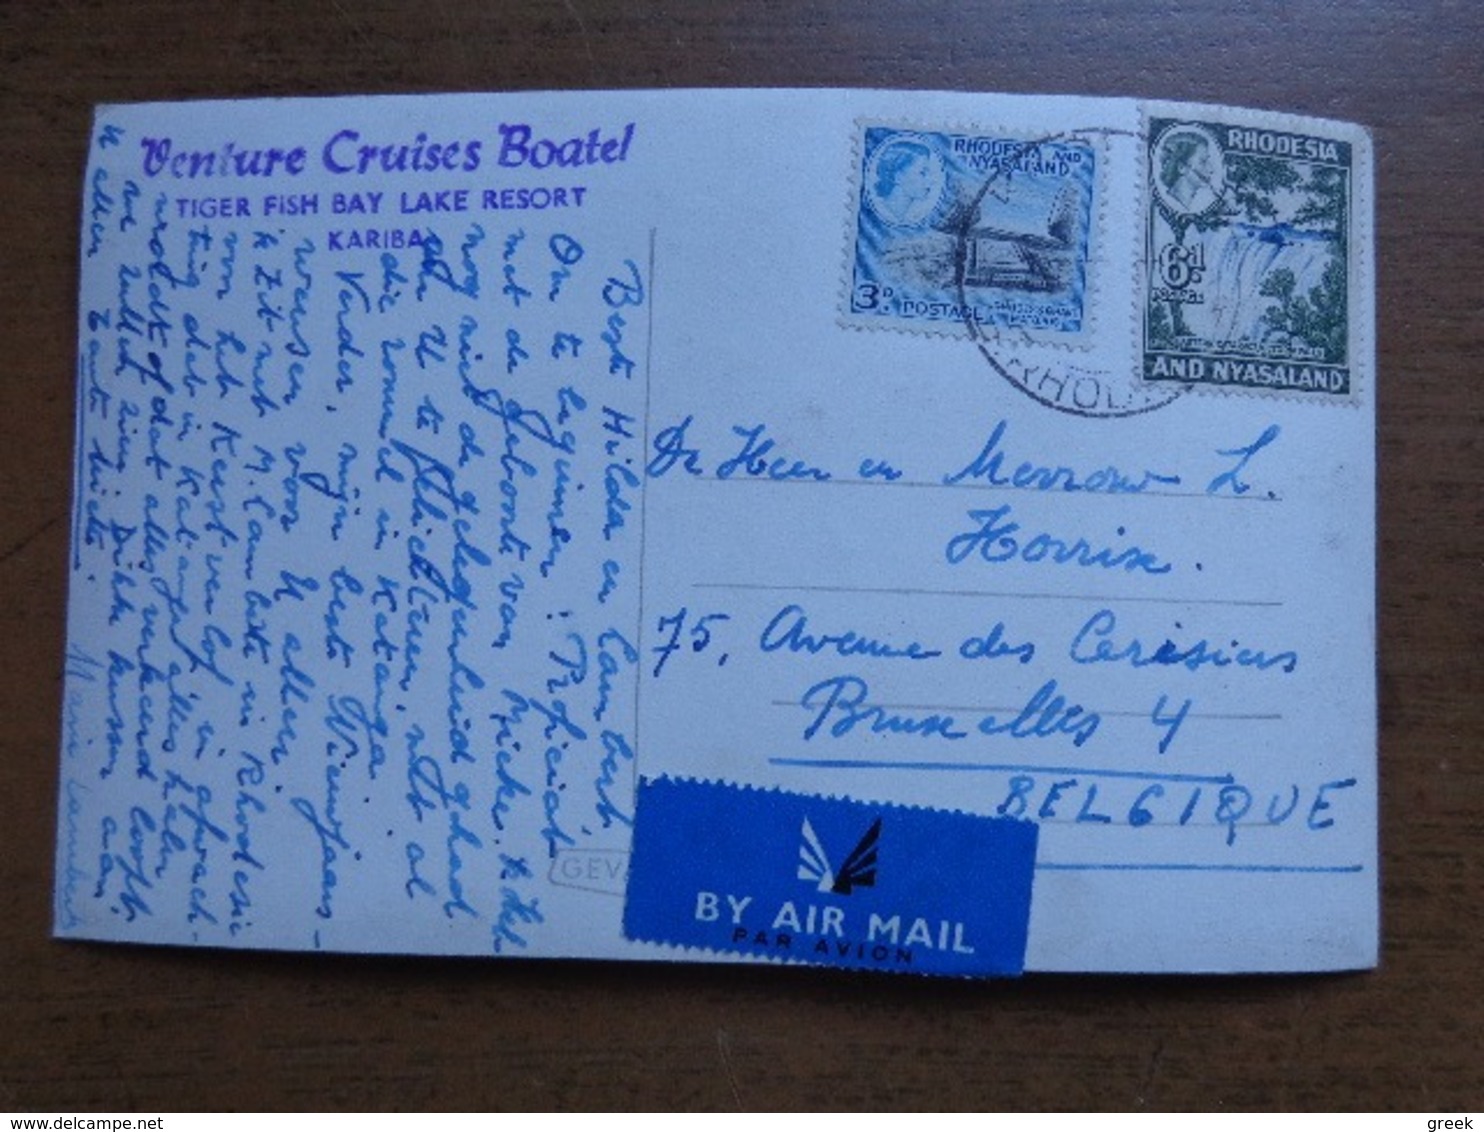 Venture Cruises Boatel
TIGER FISH BAY LAKE RESORT
KARIBA
Beste Hilda en Lambert
Om te beginnen : Proficiat
met de geboorte van Mieke. Ik heb
nog niet de gelegenheid gehad
om U te feliciteren, met al
die rommel in Katanga.
Verder, mijn beste Nieuwjaars-
wensen voor U allen.
ik zit met M. Lambert in Rhodesie
voor het Kerstverlof, in afwach-
ting dat in Katanga alles
of dat alles verkeerd loopt.
we zullen zien. Dikke kussen aan
U allen Tante
Marie Lambert
RHODESIA AND
NYASALAND
3D.
POSTAGE
RHODESIA
6d
AND NYASALAND
RHOD
Dr Heer en Mevrouw L.
Horrix.
75, Avenue des Cerisiers
Bruxelles 4
BELGIQUE
GEVA
BY AIR MAIL
PAR AVION
greek